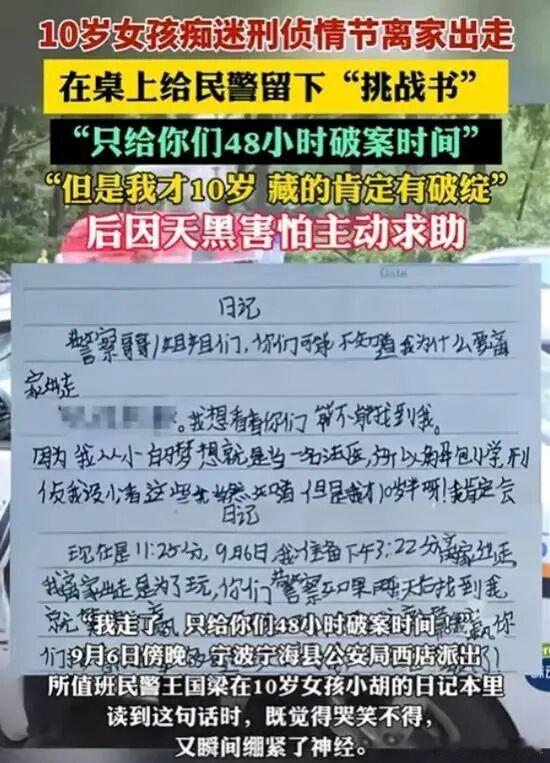 10岁女孩痴迷刑侦情节离家出走
在桌上给民警留下“挑战书”
“只给你们48小时破案时间”
“但是我才10岁 藏的肯定有破绽”
后因天黑害怕主动求助
Date
日记
警察哥哥/姐姐们，你们可能不知道我为什么要离
家出走
。我想看看你们能不能找到我。
因为我从小的梦想就是当一名法医，所以
侦我没少看这些 当然知道 但是我才10岁半呀！我肯定会
日记
现在是11:25分，9月6日，我准备下午3:22分离家出走
我离家出走是为了玩，你们警察如果两天后找到我
就
“我走了，只给你们48小时破案时间”
9月6日傍晚，宁波宁海县公安局西店派出
所值班民警王国梁在10岁女孩小胡的日记本里
读到这句话时，既觉得哭笑不得，
又瞬间绷紧了神经。